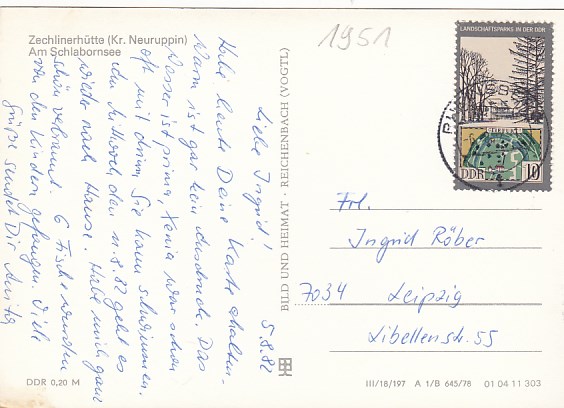 Zechlinerhütte (Kr. Neuruppin)
Am Schlabornsee
1951
LANDSCHAFTSPARKS IN DER DDR
TIEFURT
DDR 10
5.8.82
Liebe Ingrid!
Habe heute Deine Karte erhalten.
Warm ist gar kein Ausdruck. Das
Wasser ist prima, Xenia war schon
oft mit drinn, Sie kann schwimmen.
Am Mittwoch, den 11.8.82 geht es
wieder nach Hause. Habe mich ganz
schön verbrannt. 6 Fische wurden
von den Kindern gefangen. Viele
Grüße sendet Dir Anita
BILD UND HEIMAT · REICHENBACH (VOGTL)
Frl.
Ingrid Röber
7034 Leipzig
Libellenstr. 55
DDR 0,20 M
III/18/197 A 1/B 645/78 01 04 11 303